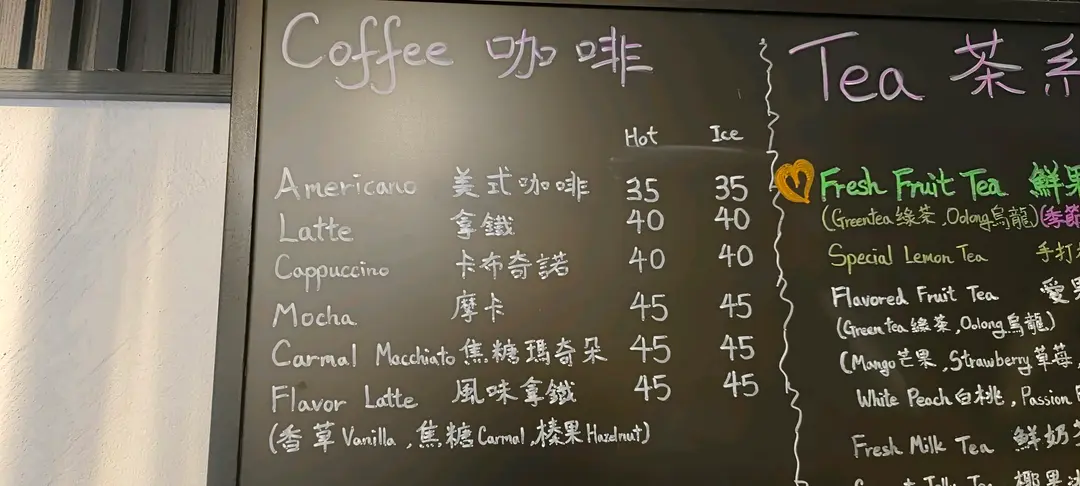 Coffee 咖啡
Hot Ice
Americano 美式咖啡 35 35
Latte 拿鐵 40 40
Cappuccino 卡布奇諾 40 40
Mocha 摩卡 45 45
Carmal Macchiato 焦糖瑪奇朵 45 45
Flavor Latte 風味拿鐵 45 45
(香草Vanilla,焦糖Carmal,榛果Hazelnut)
Tea 茶系
Fresh Fruit Tea 鮮果
(Greentea綠茶,Oolong烏龍)(季節
Special Lemon Tea 手打
Flavored Fruit Tea 愛果
(Greentea綠茶,Oolong烏龍)
(Mango芒果,Strawberry草莓,
White Peach白桃,Passion
Fresh Milk Tea 鮮奶茶